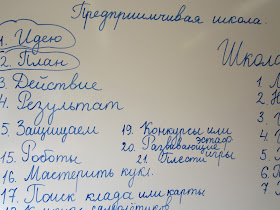 Предприимчивая школа.
1. Идею
2. План
3. Действие
4. Результат
5. Защищаем
15. Роботы
16. Мастерить кукл.
17. Поиск клада или карты
19. Конкурсы или эстаф
20. Развивающие игры
21. Плести
Школа
1.
2.
3.